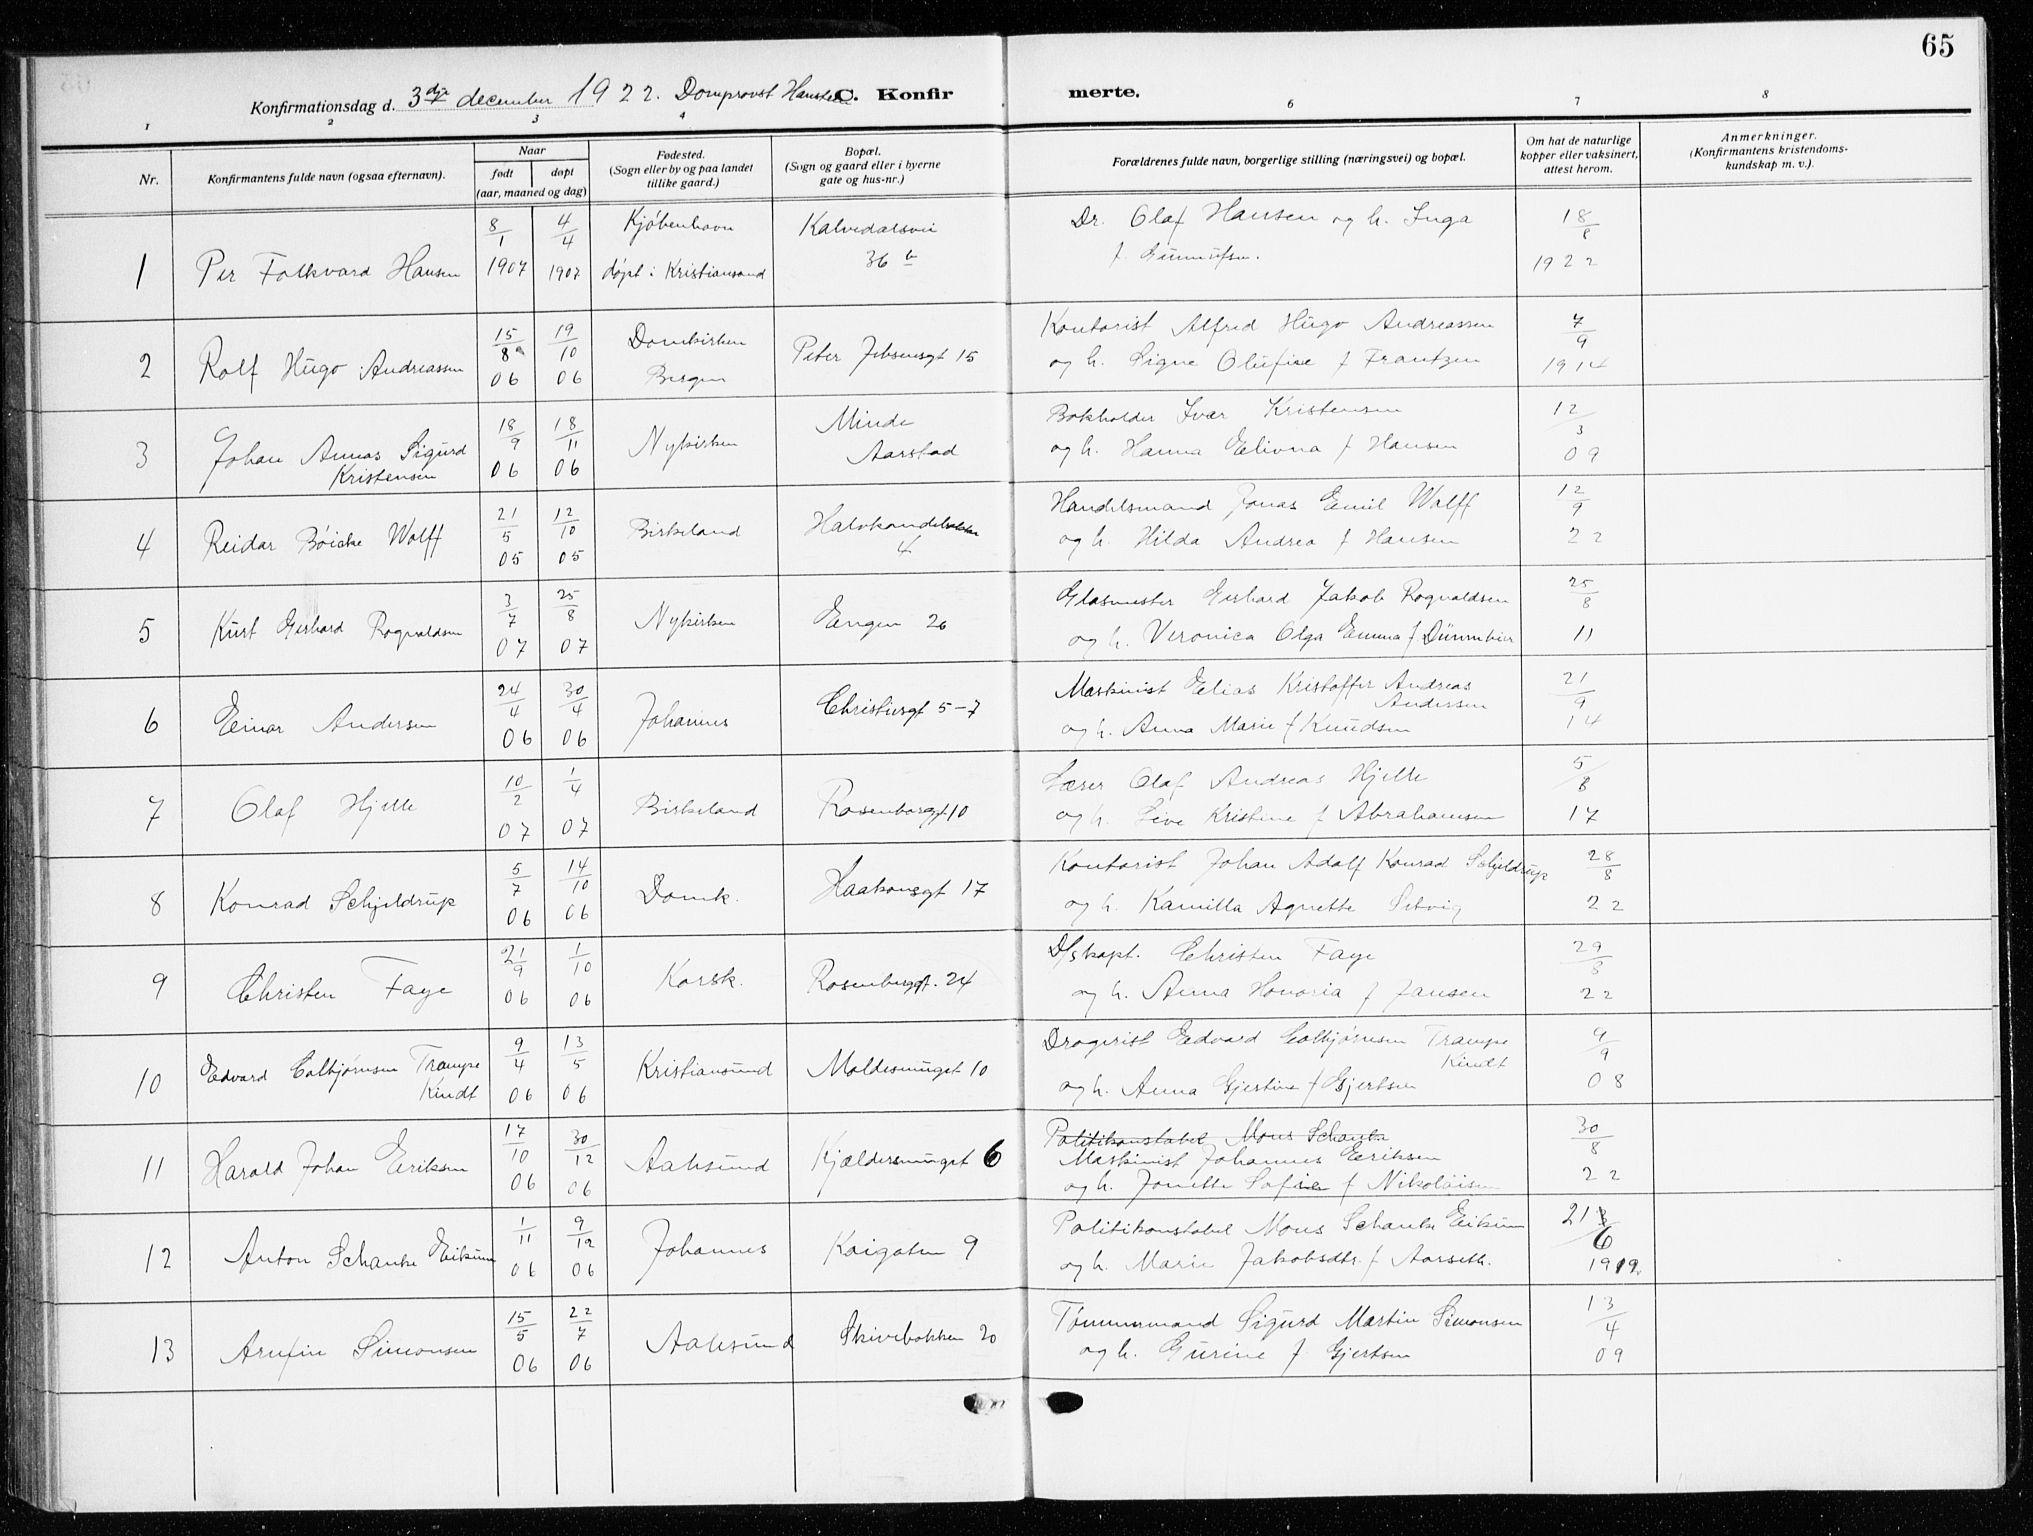 65
Konfirmationsdag d. 3dje december 1922. Domprovst Hansteen C. Konfirmerte.
1 2 3 4 6 7 8
Nr.
Konfirmantens fulde navn (ogsaa efternavn).
Naar
født
døpt
(aar, maaned og dag)
Fødested.
(Sogn eller by og paa landet
tillike gaard.)
Bopæl.
(Sogn og gaard eller i byerne
gate og hus-nr.)
Forældrenes fulde navn, borgerlige stilling (næringsvei) og bopæl.
Om hat de naturlige
kopper eller vaksinert,
attest herom.
Anmerkninger.
(Konfirmantens kristendoms-
kundskap m. v.).
1 Per Folkvard Hansen 8/1 1907 4/4 1907 Kjøbenhavn døpt i Kristiansand Kalvedalsvei 36 b
Dr. Olaf Hansen og h. Inga
f. 18/8 1922
2 Rolf Hugo Andreassen 15/8 06 19/10 06 Domkirken Bergen Peter Jebsensgt 15
Kontorist Alfred Hugo Andreassen
og h. Signe Olufine f Frantzen 7/9 1914
3 Johan Annas Sigurd Kristensen 18/9 06 18/11 06 Nykirken Minde Aarstad
Bokholder Ivar Kristensen
og h. Hanna Elivna f Hansen 12/3 09
4 Reidar Bøicke Wolff 21/5 05 12/10 05 Birkeland Halvkandebakken 4
Handelsmand Jonas Emil Wolff
og h. Hilda Andrea f Hansen 12/9 22
5 Kurt Gerhard Rognaldsen 3/7 07 25/8 07 Nykirken Engen 26
Glasmester Gerhard Jakob Rognaldsen
og h. Veronica Olga Emma f Dünnbier 25/8 11
6 Einar Andersen 24/4 06 30/4 06 Johannes Christiesgt 5-7
Maskinist Elias Kristoffer Andreas Andersen
og h. Anna Marie f Knudsen 21/9 14
7 Olaf Hjelle 10/2 07 1/4 07 Birkeland Rosenborggt 10
Lærer Olaf Andreas Hjelle
og h. Live Kristine f Abrahamsen 5/8 17
8 Konrad Schjeldrup 5/7 06 14/10 06 Domk. Haakonsgt 17
Kontorist Johan Adolf Konrad Schjeldrup
og h. Kamilla Agnette Selvig 28/8 22
9 Christen Faye 21/9 06 1/10 06 Korsk. Rosenberggt. 24
D/Skapt. Christen Faye
og h. Anna Honoria f Jansen 29/8 22
10 Edvard Colbjørnsen Trampe Kindt 9/4 06 13/5 06 Kristiansund Moldesmuget 10
Drogerist Edvard Colbjørnsen Trampe Kindt
og h. Anna Gjertine f Gjertsen 9/9 08
11 Harald Johan Eriksen 17/10 06 30/12 06 Aalesund Kjældersmuget 6
Politikonstabel Mons Schanke
Maskinist Johannes Eriksen
og h. Jonette Sofie f Nikolaisen 30/8 22
12 Anton Schanke Eikum 1/11 06 9/12 06 Johannes Kaigaten 9
Politikonstabel Mons Schanke Eikum
og h. Marie Jakobsdtr. f Aarseth. 21/6 1919.
13 Arnfin Simonsen 15/5 06 22/7 06 Aalesund Skivebakken 20
Tømmermand Sigurd Martin Simonsen
og h. Gurine f. Gjertsen 13/4 09